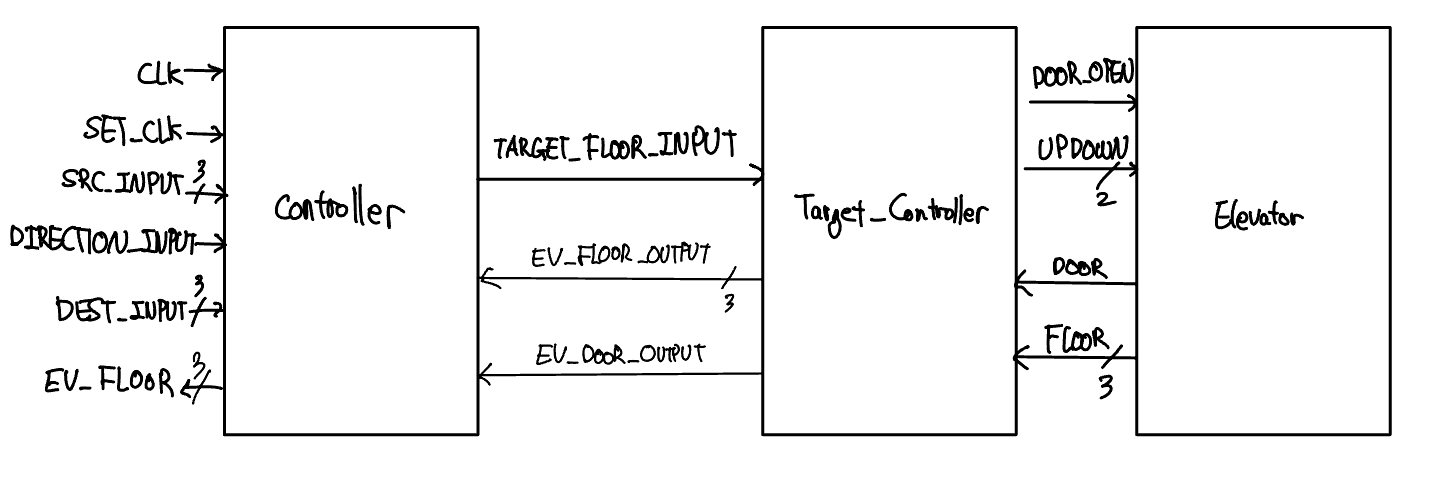 CLK
SET_CLK
3
SRC_INPUT
DIRECTION_INPUT
3
DEST_INPUT
3
EV_FLOOR
Controller
TARGET_FLOOR_INPUT
EV_FLOOR_OUTPUT
3
EV_DOOR_OUTPUT
Target_Controller
DOOR_OPEN
UPDOWN
2
DOOR
FLOOR
3
Elevator